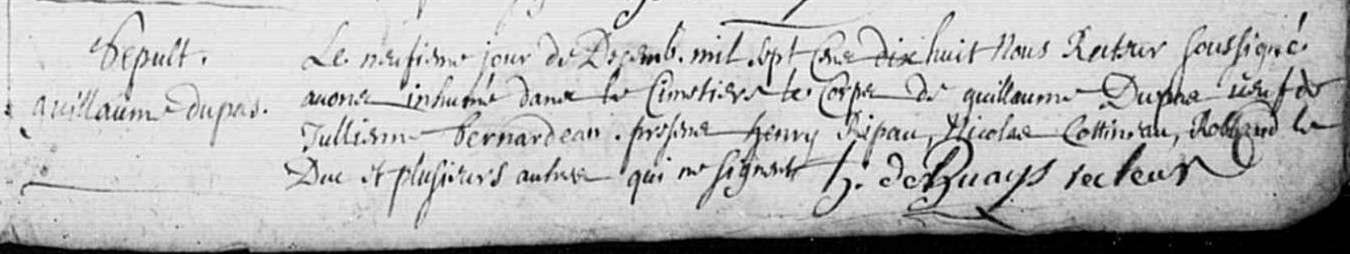 Sepult.
guillaume dupas.
Le neufieme jour de Decemb. mil sept cens dix huit Nous Recteur soussigné
avons inhumé dans le Cimetiere le Corps de guillaume Dupas veuf de
Jullienne bernardeau. presens henry Ripau, Nicolas Cottineau, Rolland le
Duc et plusieurs autres qui ne signent h. de recteur